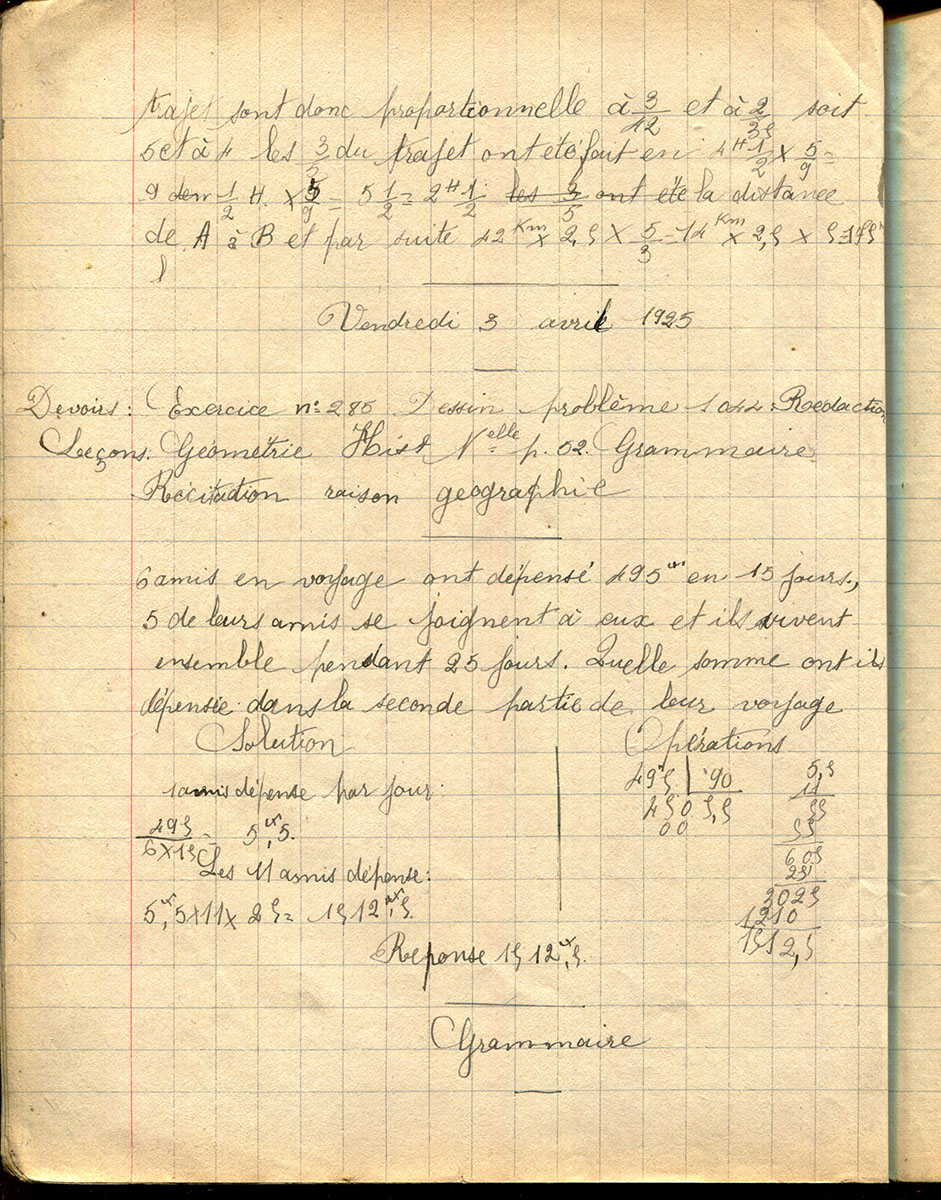 trajet sont donc proportionnelle à 3/42 et à 2/35 soit
5 et à 4 les 3/5 du trajet ont été fait en 4 H 1/2 × 5/9 =
9 dem 1/2 H. × 5/9 = 5 1/2 = 2 H 1/2 les 3/5 ont été la distance
de A à B et par suite 42 Km × 2,5 × 5/3 = 14 Km × 2,5 × 5 = 175
Vendredi 3 avril 1925
Devoirs : Exercice n° 285 Dessin problème 1044. Rédaction
Leçons. Géométrie Hist Nelle p. 52. Grammaire
Récitation raison geographie
6 amis en voyage ont dépensé 495 en 15 jours.,
5 de leurs amis se joignent à eux et ils vivent
ensemble pendant 25 jours. Quelle somme ont ils
dépensée dans la seconde partie de leur voyage
Solution
Opérations
1 amis dépense par jour :
495/6×15 = 5,5.
Les 11 amis dépense :
5,5×11×25= 1512,5.
Reponse 1512,5.
495 | 90
450 5,5
00
5,5
11
55
55
605
25
3025
1210
1512,5
Grammaire